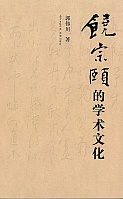 郭伟川 著
饒宗頤
的学术文化